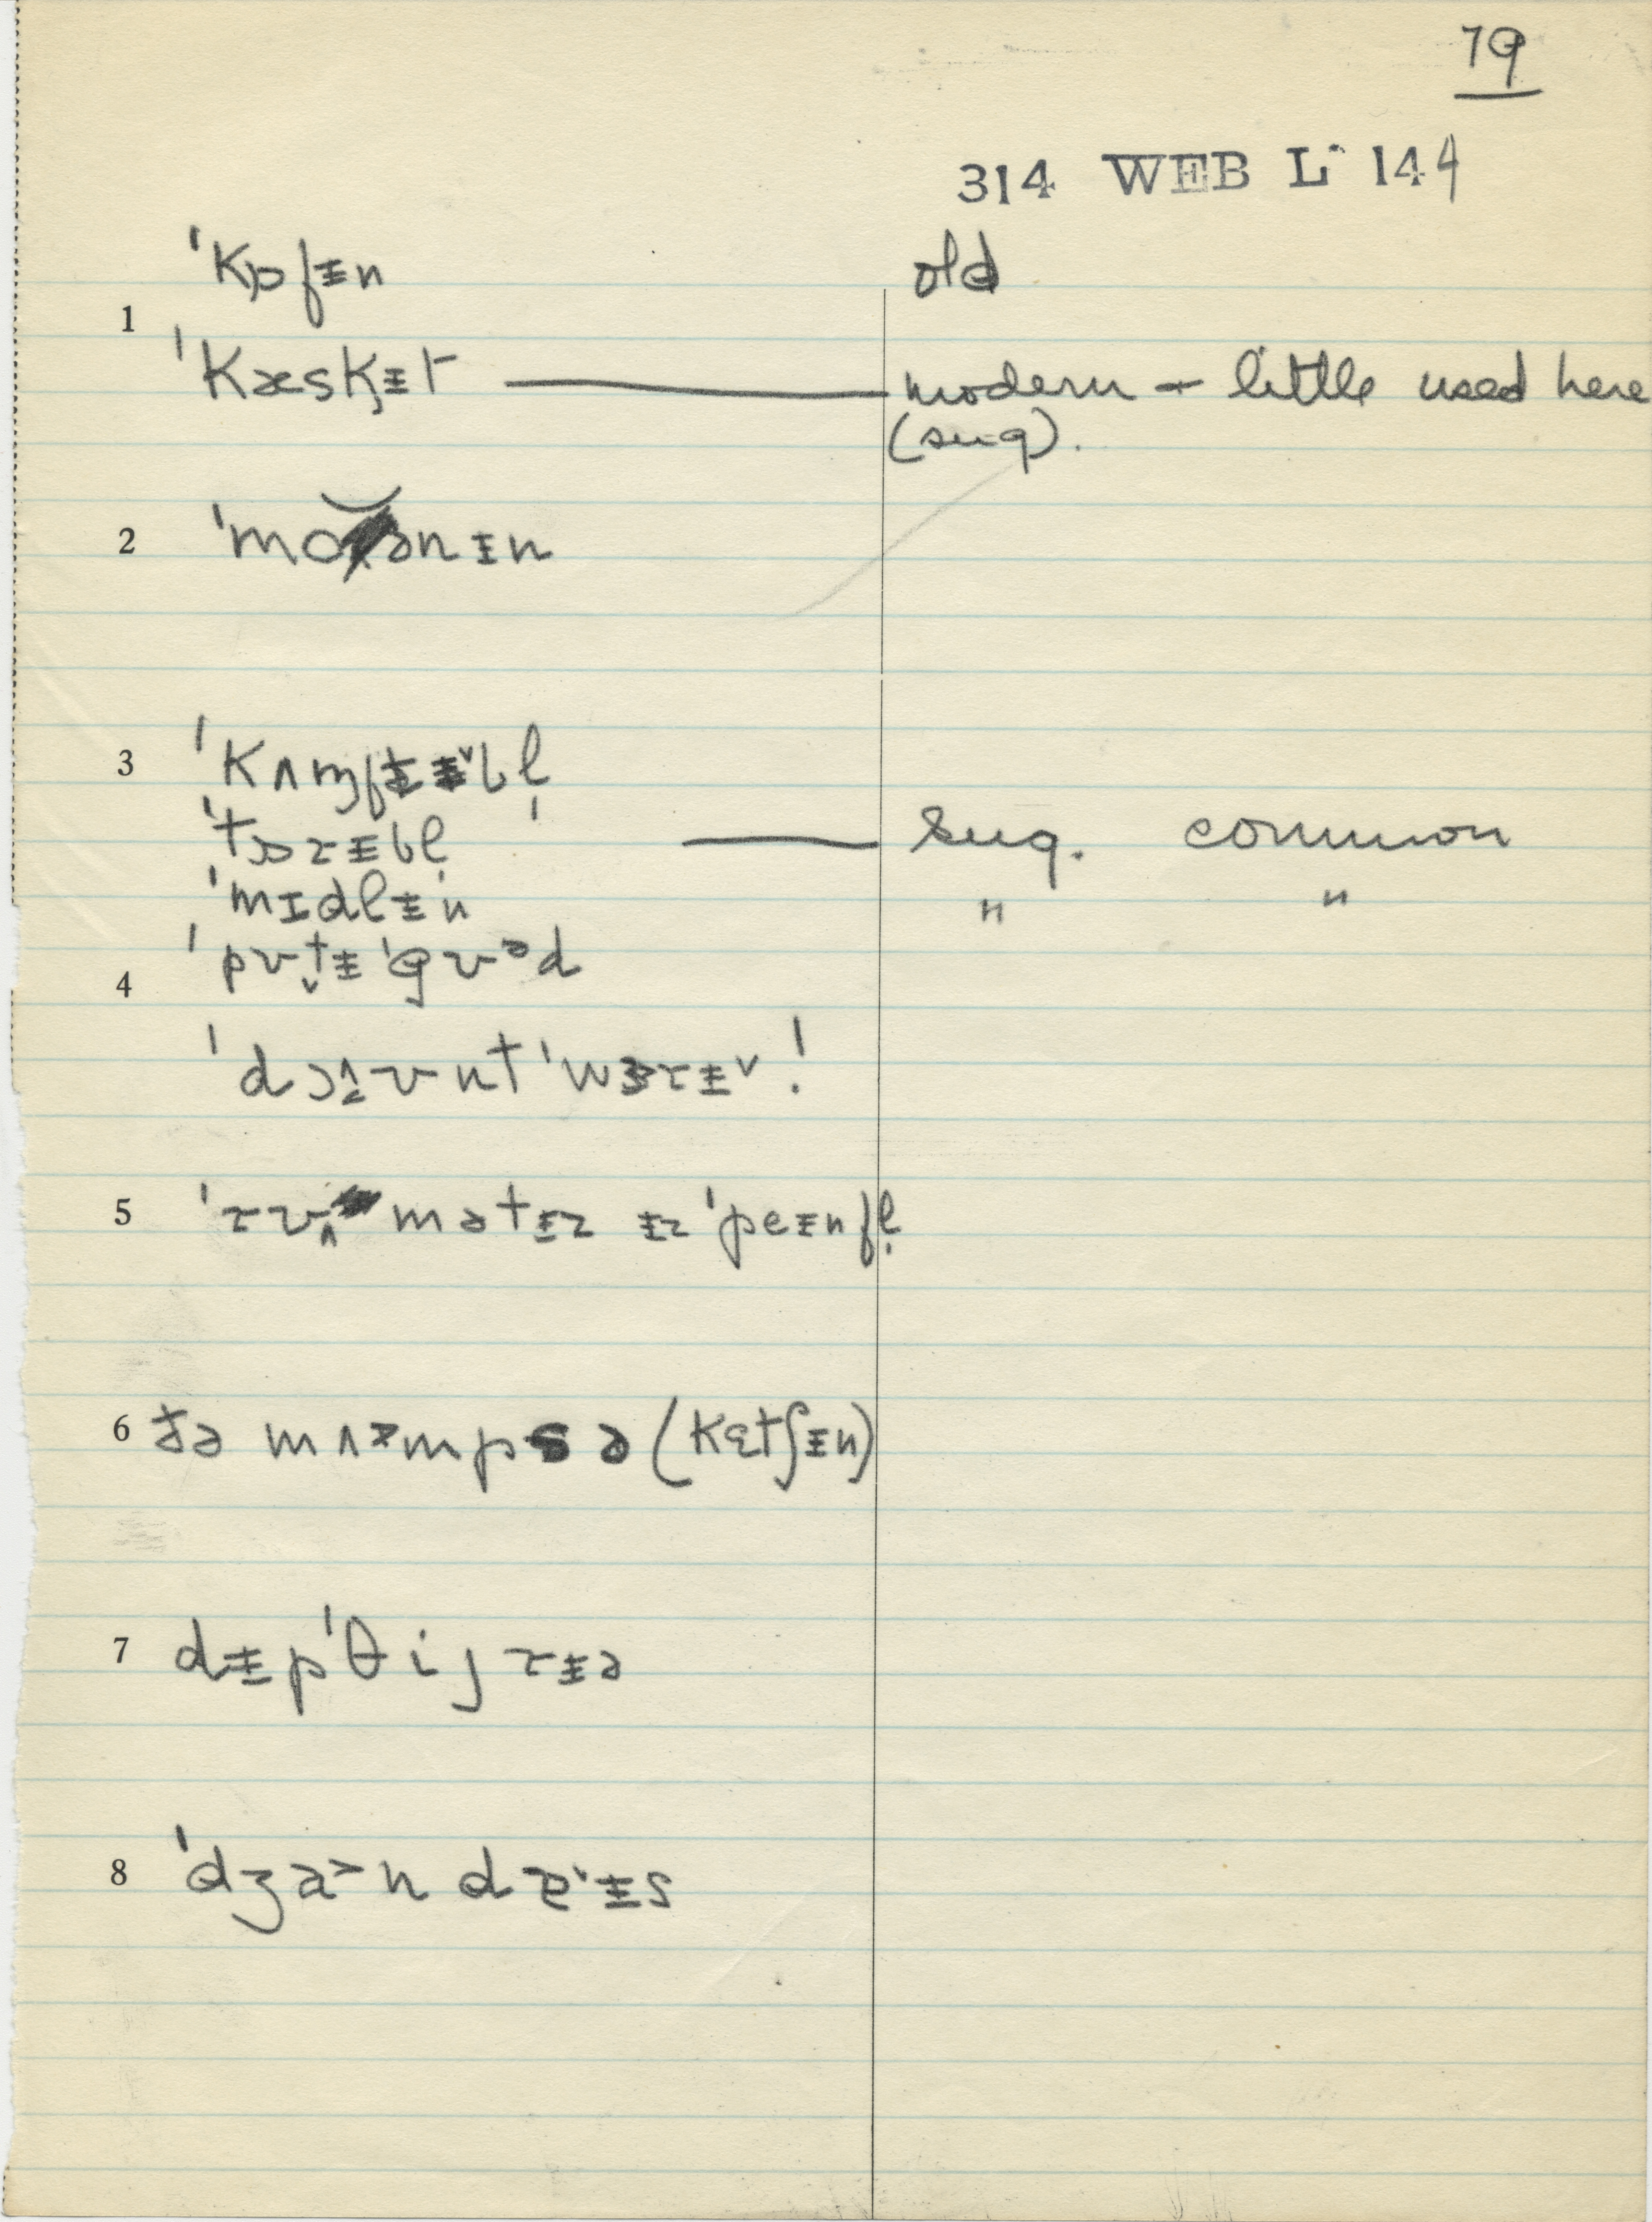 79
314 WEB L· 144
ˈkɒfᵻn old
1
ˈkæskᵻt — modern + little used here
(sug).
2 ˈmoənɪn
3 ˈkʌɱftᵻᵻ˅bl̩
ˈtɒɹᵻbl̩ — sug. common
ˈmɪdlᵻn " "
4 ˈpʊtᵻ ˈgʊᵊd
ˈdɔɪʊntˈwɜɹᵻ˅!
5 ˈɹʊmətᵻz ᵻzˈpeᵻnfl̩
6 ðə mʌmps ə (kɛtʃᵻn)
7 dᵻpˈθijɹᵻə
8 ˈdʒa˃ndɪᵻs